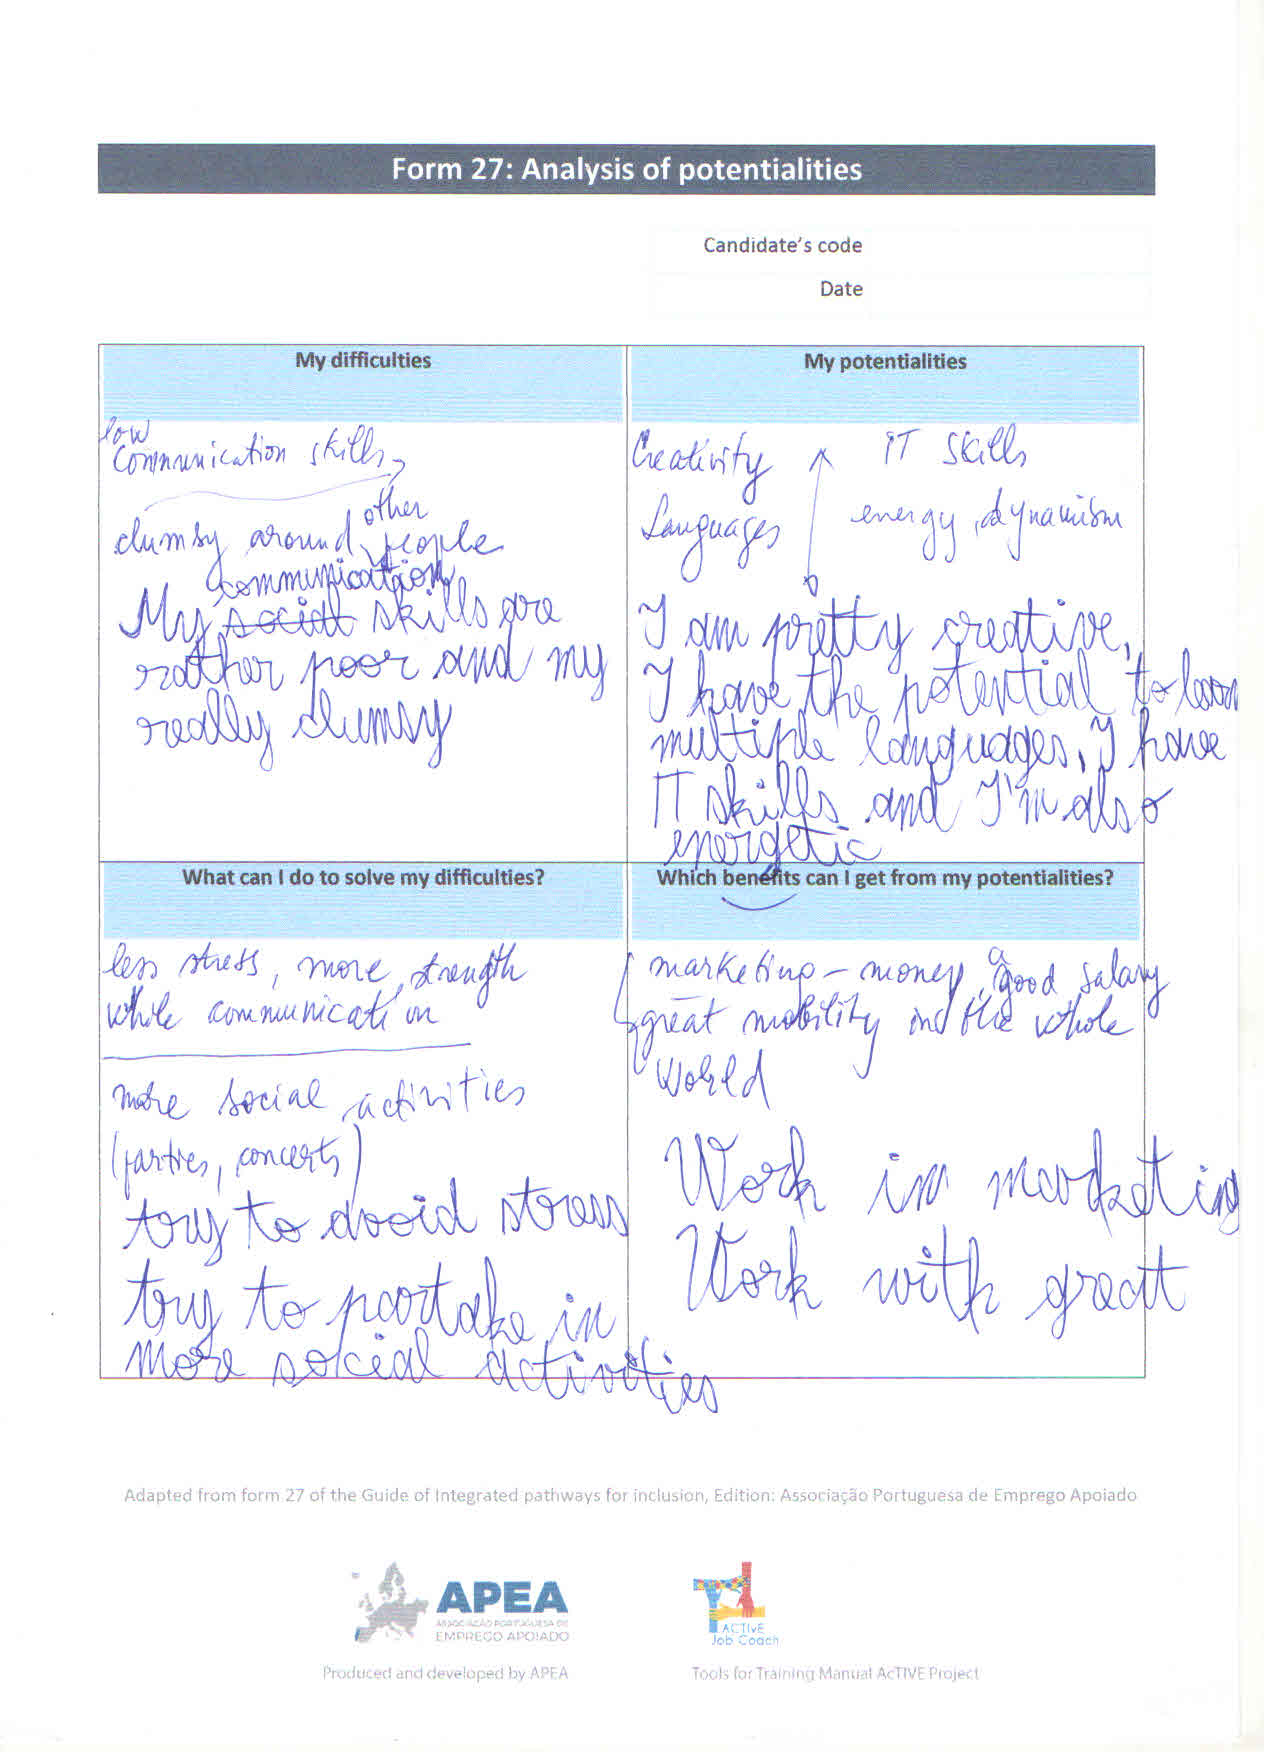 Form 27: Analysis of potentialities
Candidate's code
Date
My difficulties
low
communication skills,
clumsy around other people
communication
My social skills are
rather poor and my
really clumsy
My potentialities
Creativity
IT skills
Languages
energy, dynamism
I am pretty creative,
I have the potential to learn
multiple languages, I have
IT skills and I'm also
energetic
What can I do to solve my difficulties?
less stress, more strength
while communication
more social activities
(parties, concerts)
try to avoid stress
try to partake in
more social activities
Which benefits can I get from my potentialities?
marketing - money, a good salary
great mobility in the whole
world
Work in marketing
Work with great
Adapted from form 27 of the Guide of Integrated pathways for inclusion, Edition: Associação Portuguesa de Emprego Apoiado
APEA
ASSOCIAÇÃO PORTUGUESA DE
EMPREGO APOIADO
ACTIVE
Job Coach
Produced and developed by APEA
Tools for Training Manual AcTIVE Project